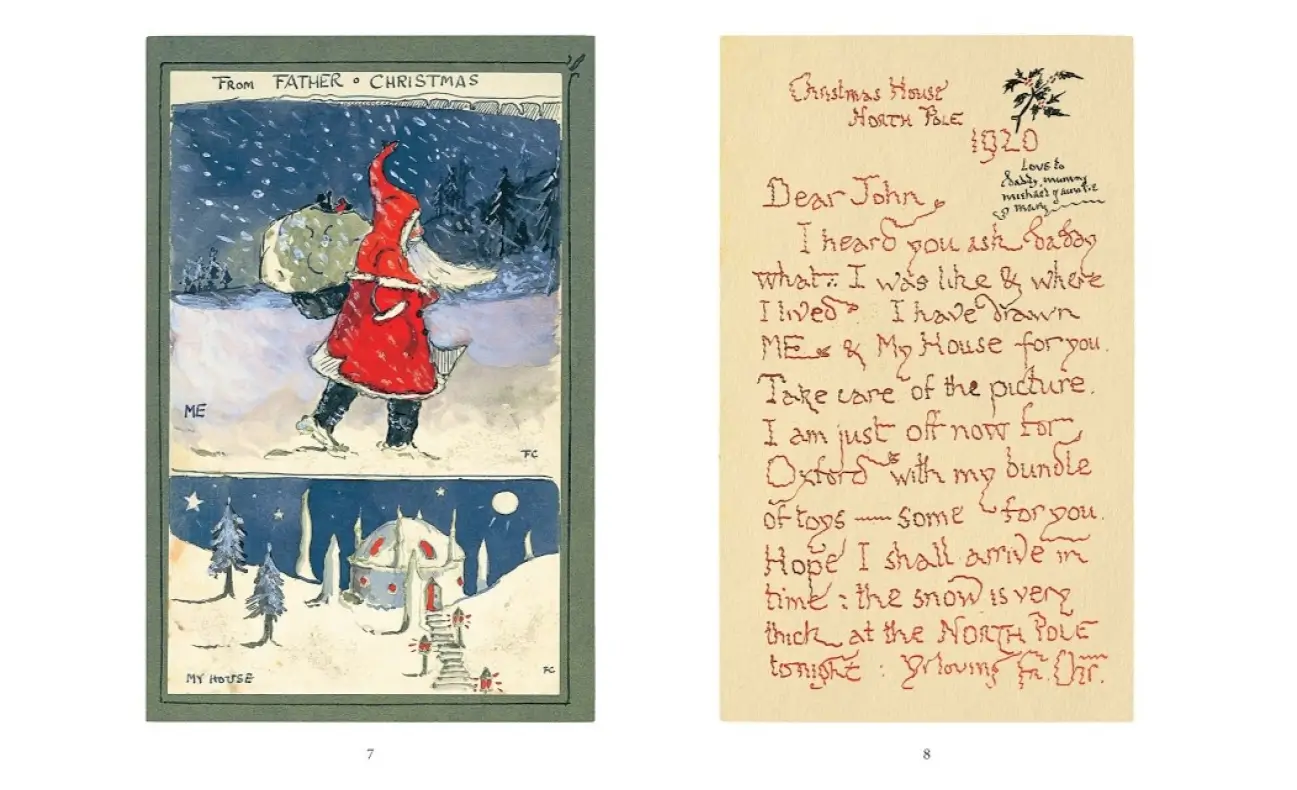 FROM FATHER CHRISTMAS
ME
FC
MY HOUSE
FC
7
Christmas House
NORTH POLE
1920
Love to
daddy, mummy
michael & auntie
& mary
Dear John
I heard you ask daddy
what I was like & where
I lived. I have drawn
ME & My House for you.
Take care of the picture.
I am just off now for
Oxford with my bundle
of toys — some for you.
Hope I shall arrive in
time : the snow is very
thick at the NORTH POLE
tonight : Yr loving Fr. Chr.
8